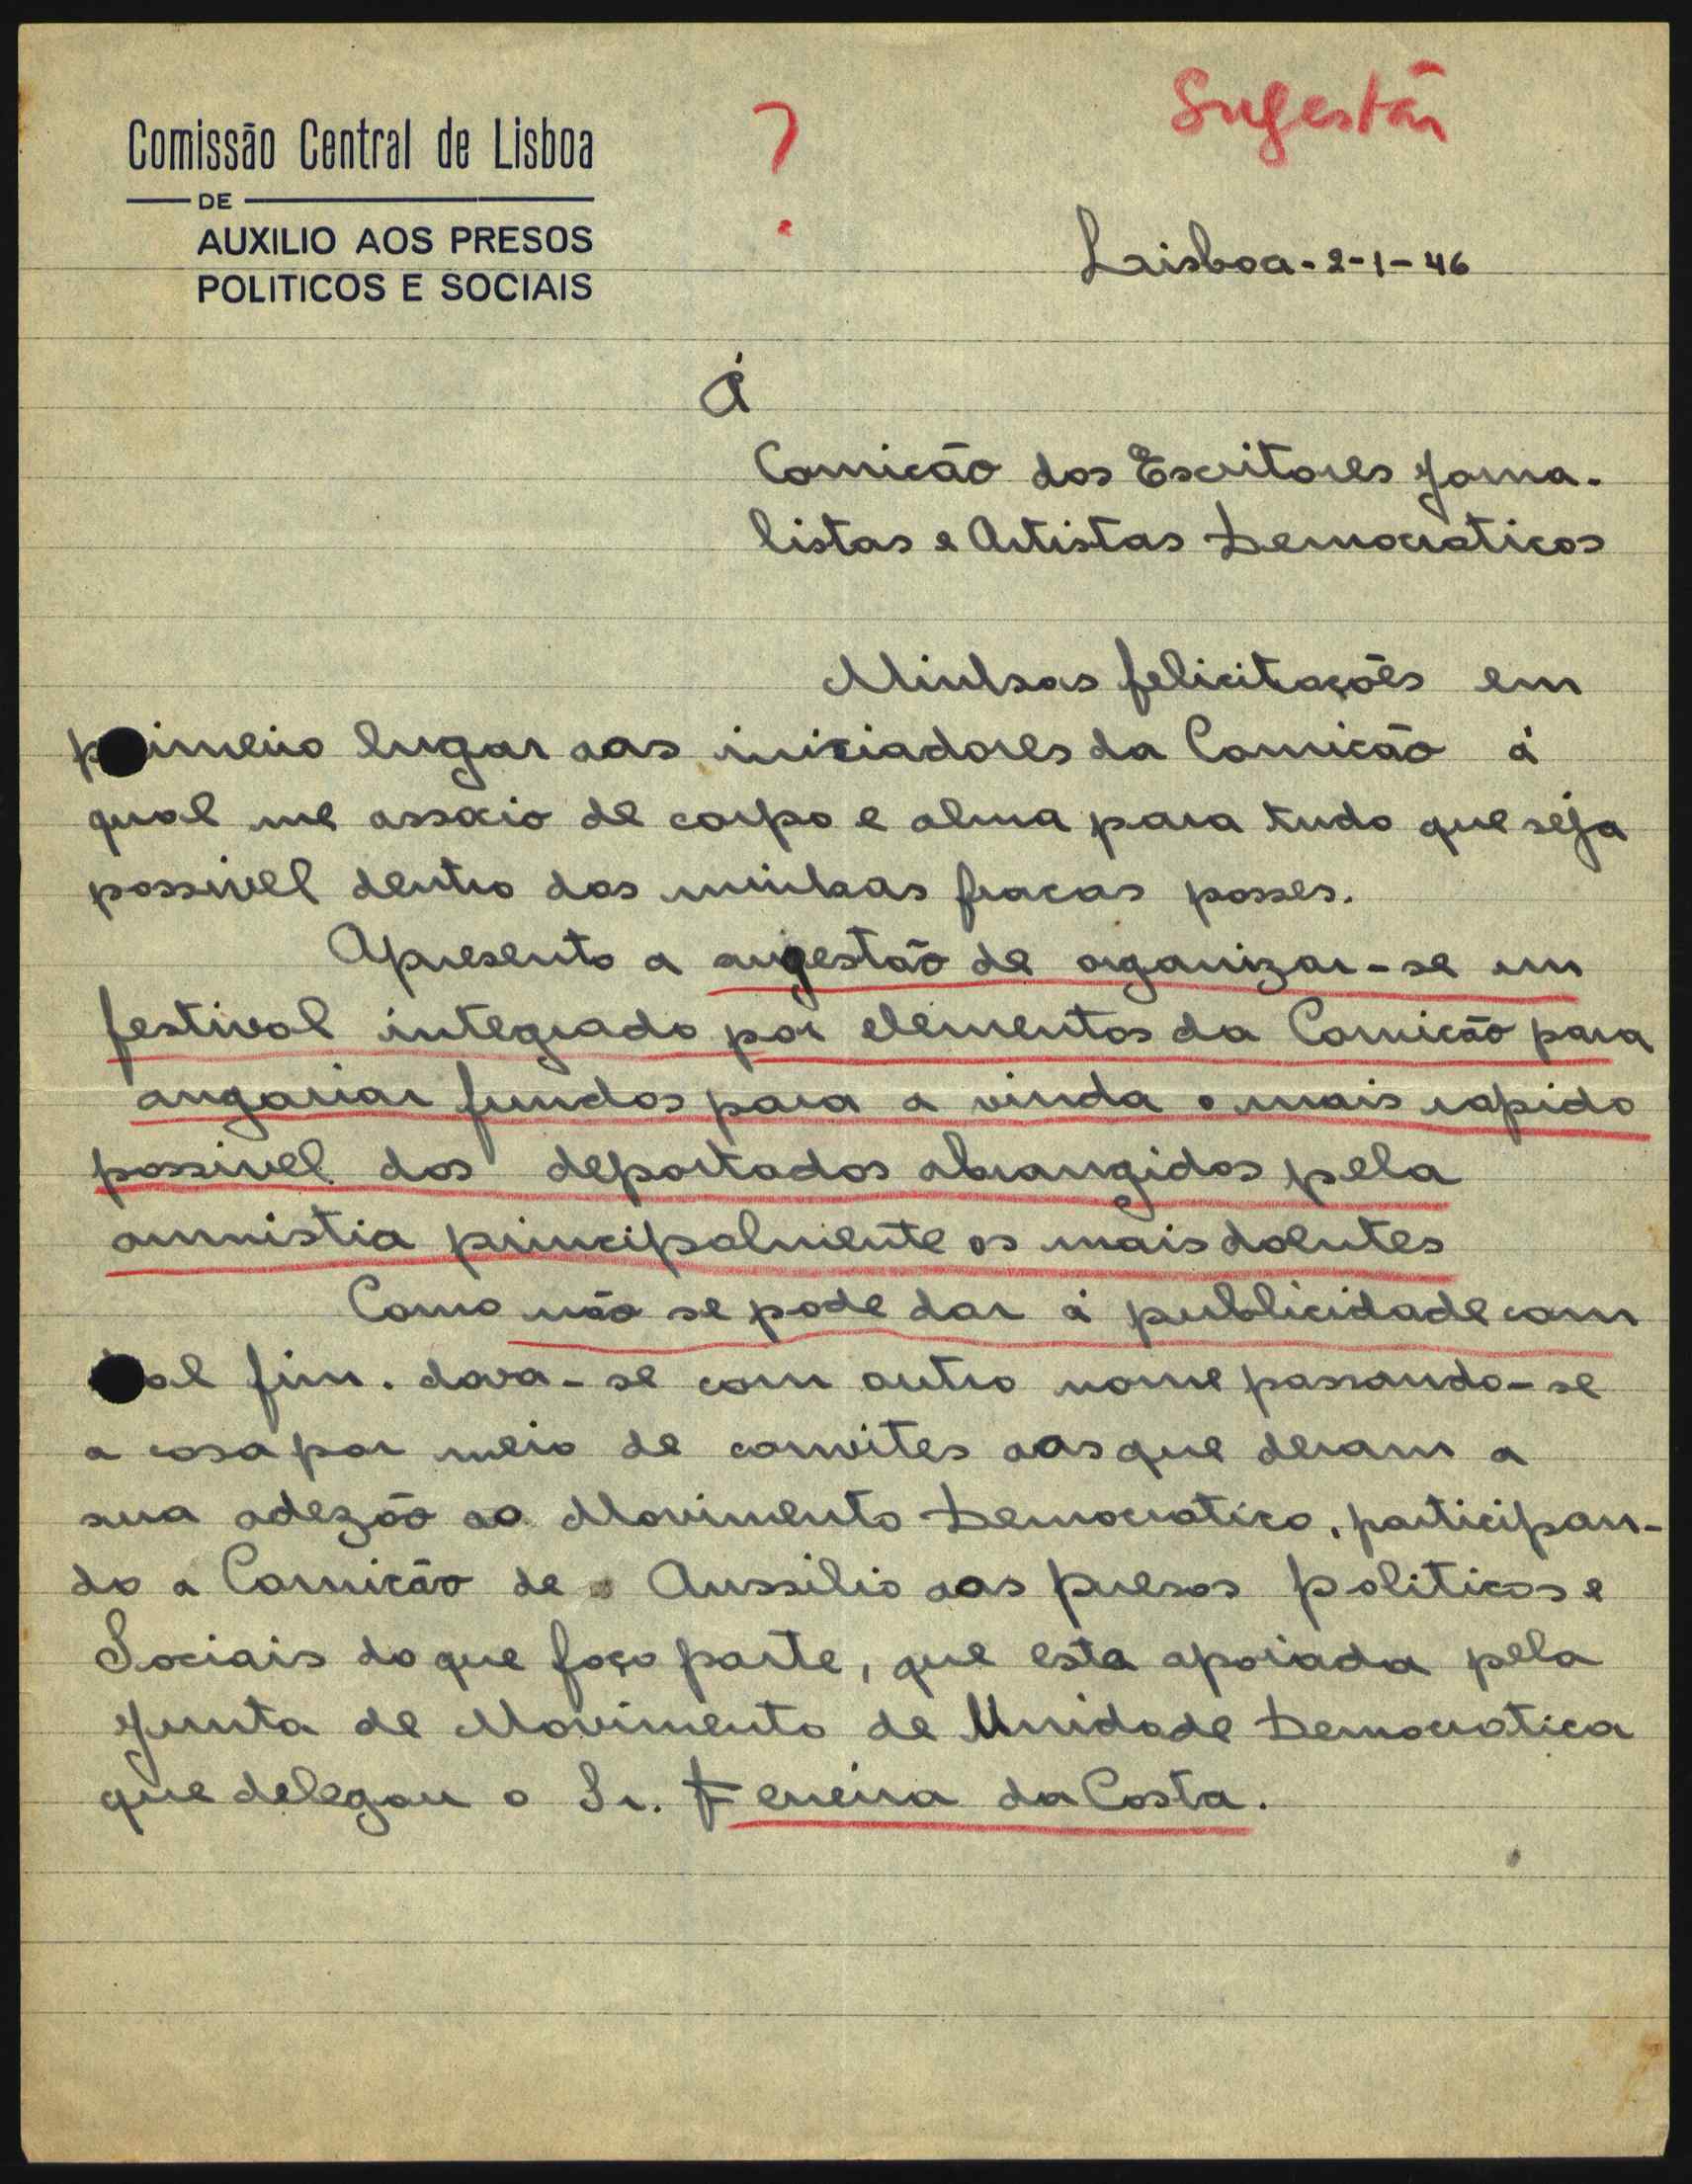 Comissão Central de Lisboa
DE
AUXILIO AOS PRESOS
POLITICOS E SOCIAIS
?
Sugestão
Lisboa-2-1-46
Á
Comicão dos Escritores Jorna-
listas e Artistas Democraticos
Minhas felicitaçoẽs em
primeiro lugar aos iniciadores da Comicão á
qual me assocío de corpo e alma para tudo que seja
possivel dentro das minhas fracas posses.
Apresento a sugestão de organizar-se um
festival integrado por elementos da Comicão para
angariar fundos para a vinda o mais rapido
possivel dos deportados abrangidos pela
amnistia principalmente os mais doentes
Como não se pode dar á publicidade com
tal fim. dava-se com outro nome passando-se
a cosa por meio de convites aos que deram a
sua adezão ao Movimento Democratico, participan-
do a Comicão de Aussilio aos presos politicos e
Sociais do que faço parte, que esta apoiada pela
Junta de Movimento de Unidade Democratica
que delegou o Sr. Ferreira da Costa.